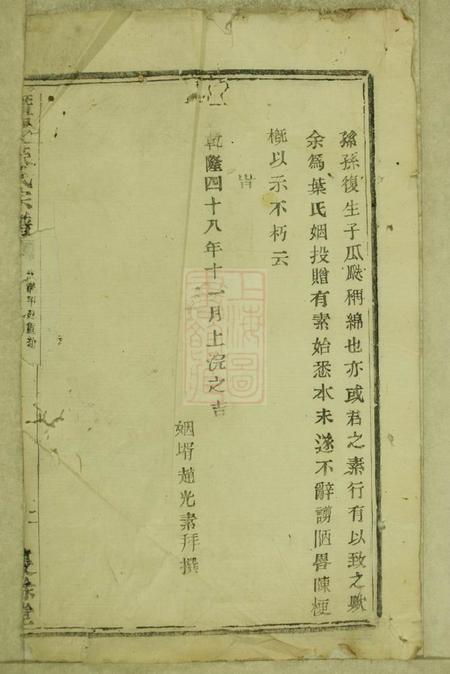 孫孫復生子瓜瓞稱綿也亦或君之素行有以致之歟
余為葉氏姻投贈有素始悉本末遂不辭謭陋畧陳梗
槪以示不朽云
旹
乾隆四十八年十一月上浣之吉
姻壻趙光素拜撰
上海圖書館藏